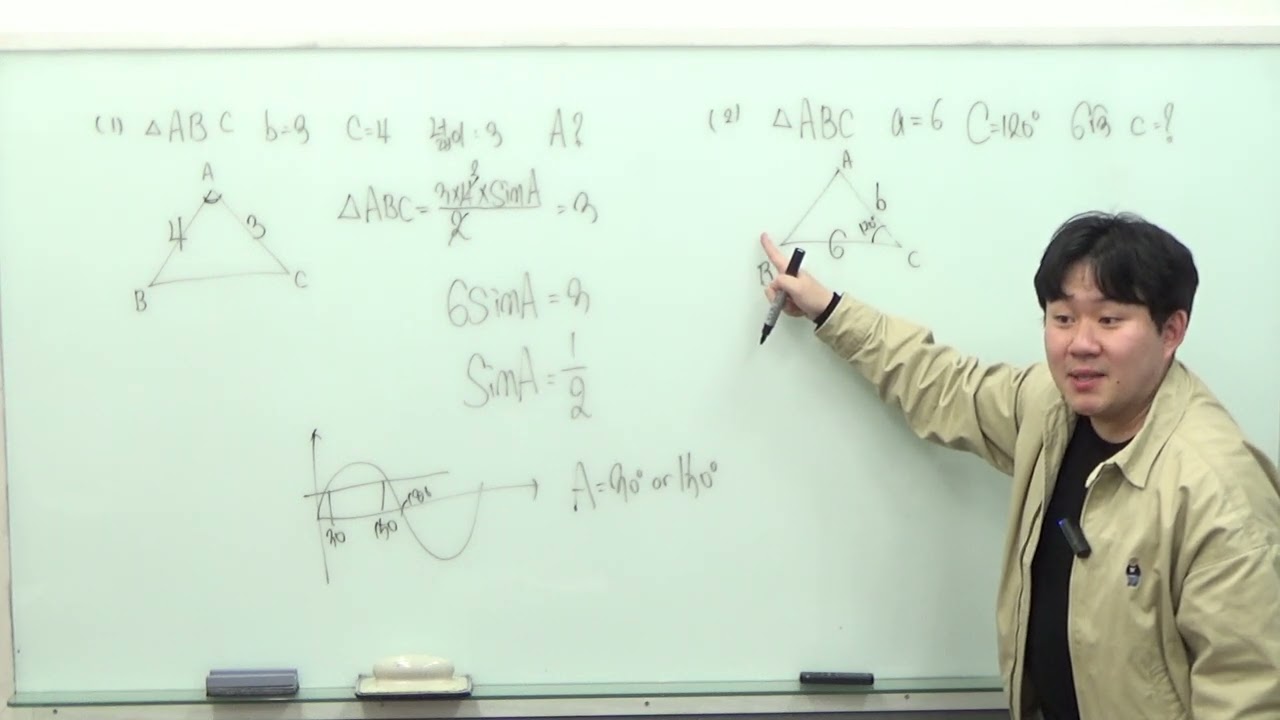 (1) △ABC b=3 c=4 넓이:3 A?
A
4 3
B C
△ABC = 3×4²×sinA / 2 = 3
6sinA = 3
sinA = 1/2
30 150 180
A=30° or 150°
(2) △ABC a=6 C=120° 6√3 c=?
A
b
120°
6
B C